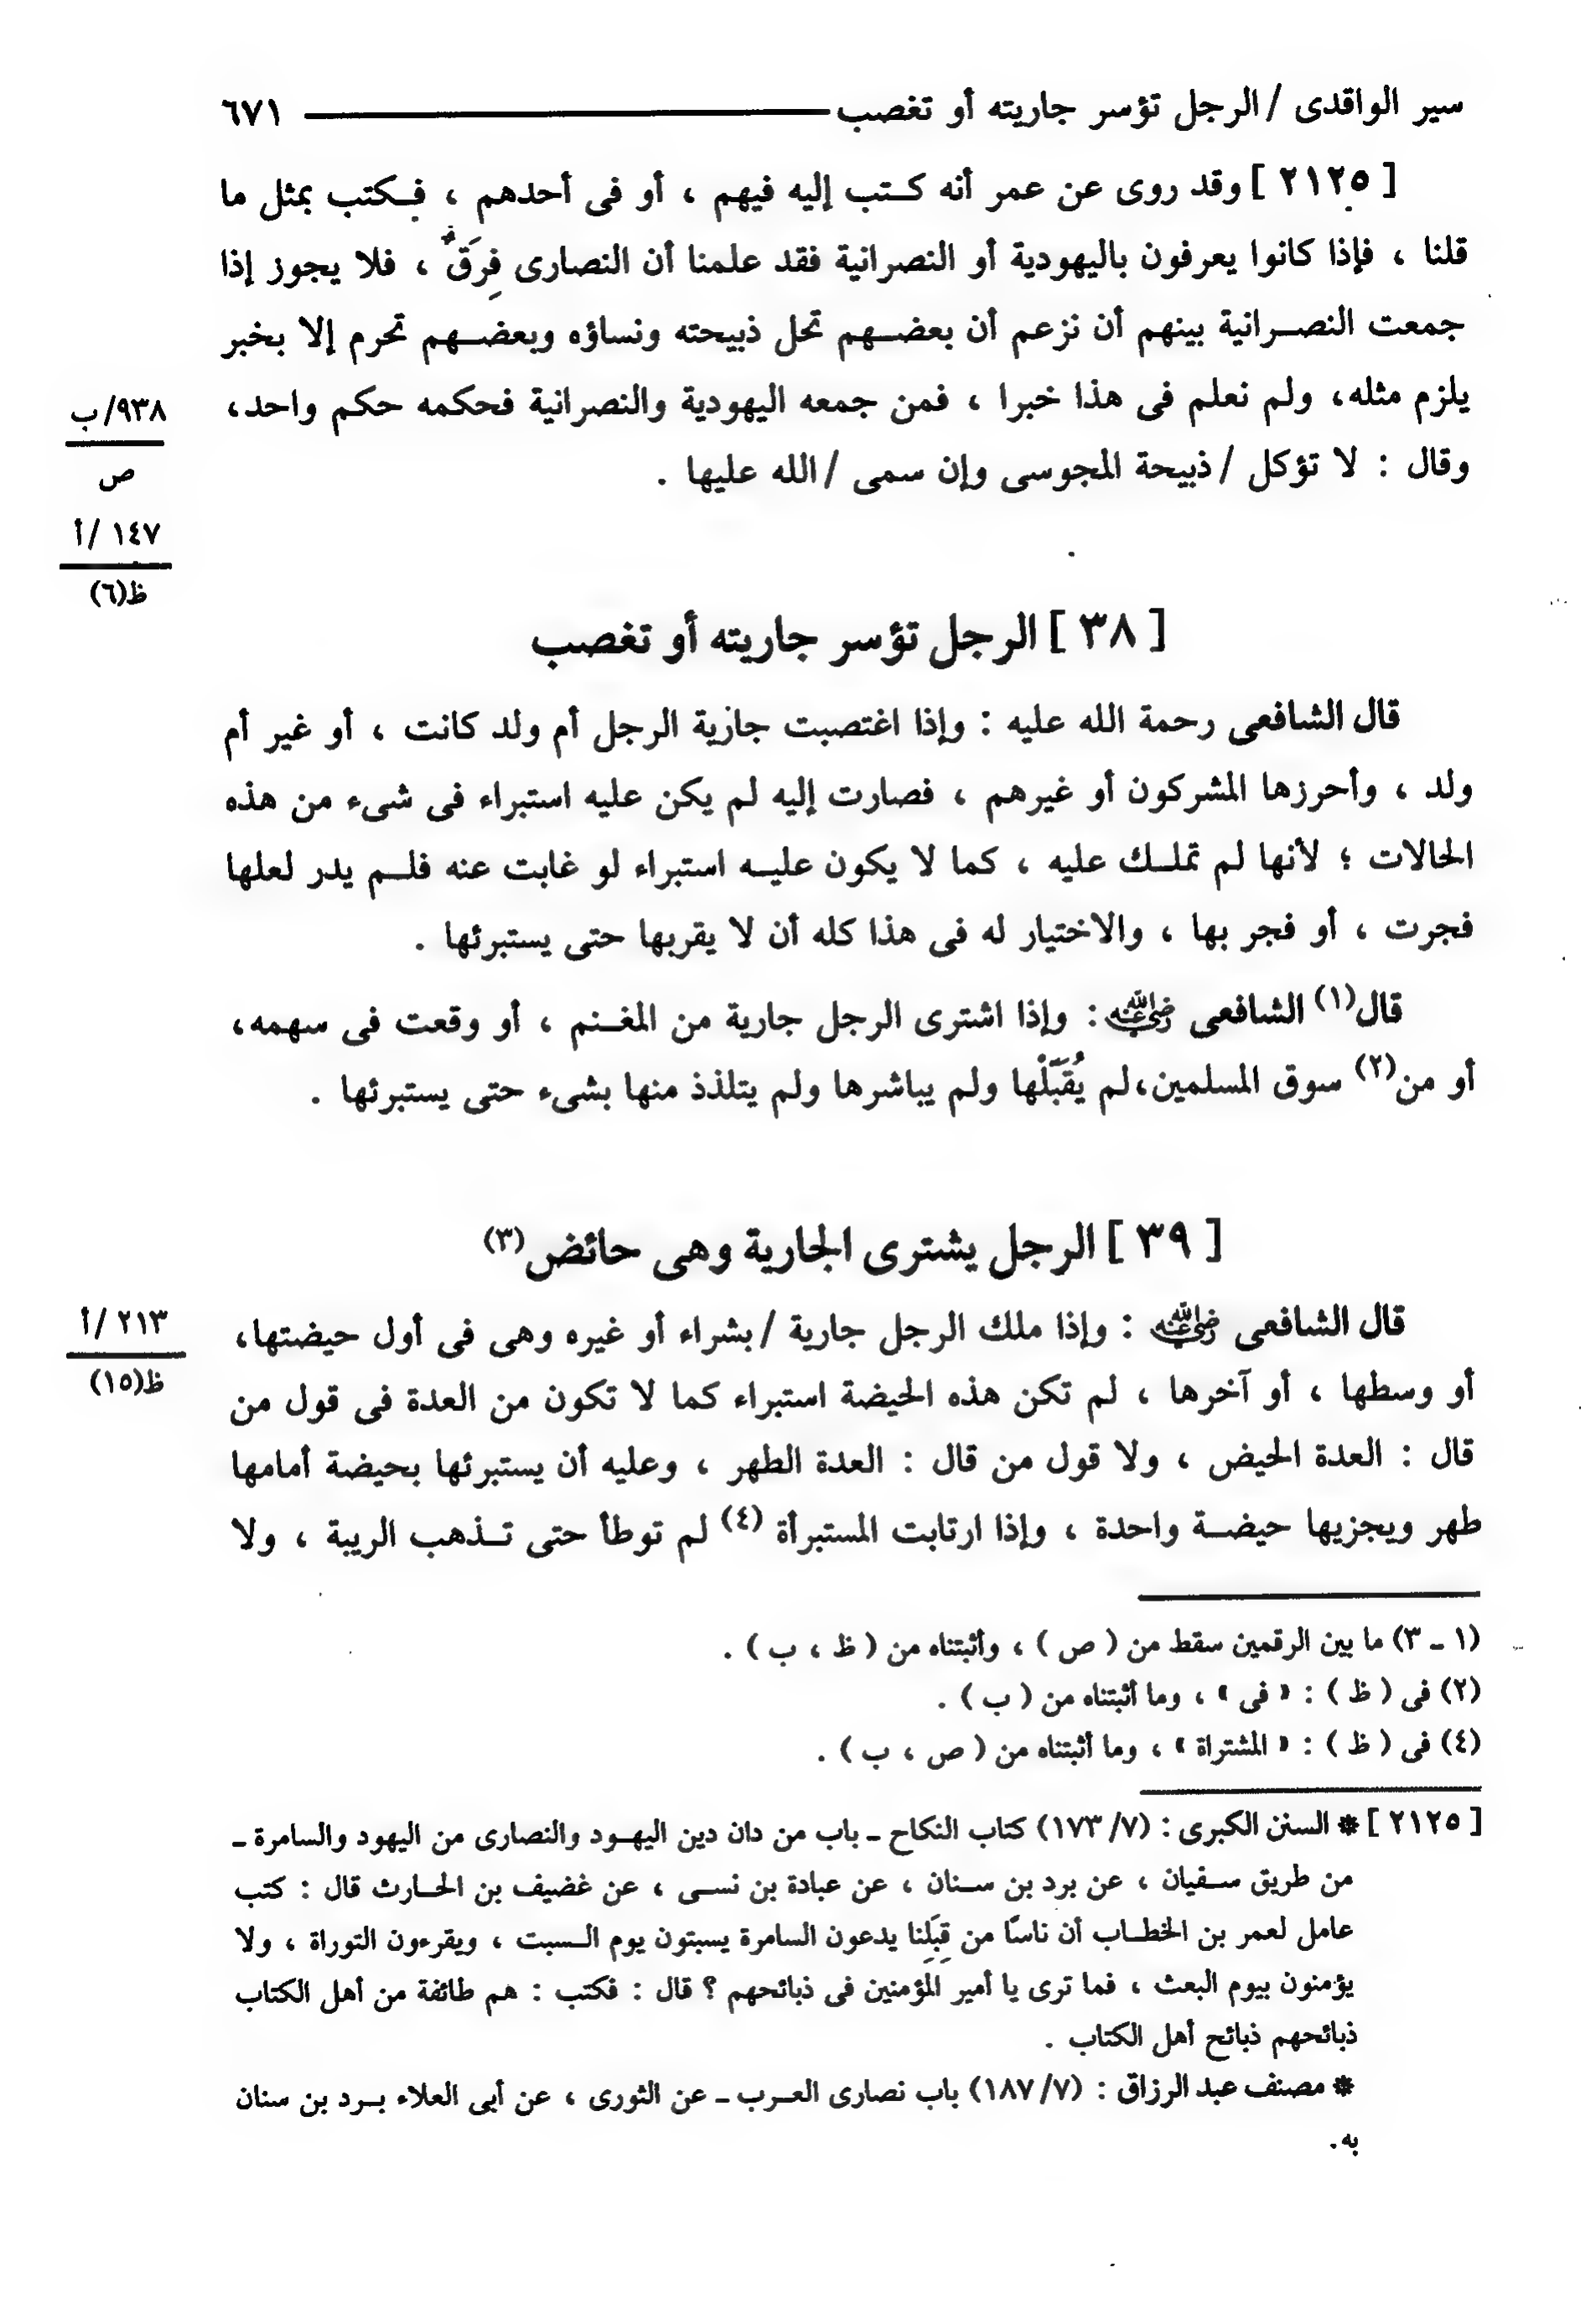 سير الواقدى / الرجل تؤسر جاريته أو تغصب ٦٧١
[ ٢١٢٥ ] وقد روى عن عمر أنه كتب إليه فيهم ، أو فى أحدهم ، فكتب بمثل ما
قلنا ، فإذا كانوا يعرفون باليهودية أو النصرانية فقد علمنا أن النصارى فِرَقٌ ، فلا يجوز إذا
جمعت النصرانية بينهم أن نزعم أن بعضهم تحل ذبيحته ونساؤه وبعضهم تحرم إلا بخبر
يلزم مثله، ولم نعلم فى هذا خبرا ، فمن جمعه اليهودية والنصرانية فحكمه حكم واحد،
٩٣٨/ب
وقال : لا تؤكل / ذبيحة المجوسى وإن سمى / الله عليها .
ص
١٤٧ /أ
ظ(٦)
[ ٣٨ ] الرجل تؤسر جاريته أو تغصب
قال الشافعى رحمة الله عليه : وإذا اغتصبت جازية الرجل أم ولد كانت ، أو غير أم
ولد ، وأحرزها المشركون أو غيرهم ، فصارت إليه لم يكن عليه استبراء فى شىء من هذه
الحالات ؛ لأنها لم تملك عليه ، كما لا يكون عليه استبراء لو غابت عنه فلم يدر لعلها
فجرت ، أو فجر بها ، والاختيار له فى هذا كله أن لا يقربها حتى يستبرئها .
قال(١) الشافعى رضي الله عنه : وإذا اشترى الرجل جارية من المغنم ، أو وقعت فى سهمه،
أو من(٢) سوق المسلمين،لم يُقَبِّلْها ولم يباشرها ولم يتلذذ منها بشىء حتى يستبرئها .
[ ٣٩ ] الرجل يشترى الجارية وهى حائض(٣)
قال الشافعى رضي الله عنه : وإذا ملك الرجل جارية / بشراء أو غيره وهى فى أول حيضتها،
٢١٣ /أ
ظ(١٥)
أو وسطها ، أو آخرها ، لم تكن هذه الحيضة استبراء كما لا تكون من العدة فى قول من
قال : العدة الحيض ، ولا قول من قال : العدة الطهر ، وعليه أن يستبرئها بحيضة أمامها
طهر ويجزيها حيضة واحدة ، وإذا ارتابت المستبرأة (٤) لم توطأ حتى تذهب الريبة ، ولا
(١ ـ ٣) ما بين الرقمين سقط من ( ص ) ، وأثبتناه من ( ظ ، ب ) .
(٢) فى ( ظ ) : « فى » ، وما أثبتناه من ( ب ) .
(٤) فى ( ظ ) : « المشتراة » ، وما أثبتناه من ( ص ، ب ) .
[ ٢١٢٥ ] * السنن الكبرى : (٧/ ١٧٣) كتاب النكاح ـ باب من دان دين اليهود والنصارى من اليهود والسامرة ـ
من طريق سفيان ، عن برد بن سنان ، عن عبادة بن نسى ، عن غضيف بن الحارث قال : كتب
عامل لعمر بن الخطاب أن ناسًا من قِبَلِنا يدعون السامرة يسبتون يوم السبت ، ويقرءون التوراة ، ولا
يؤمنون بيوم البعث ، فما ترى يا أمير المؤمنين فى ذبائحهم ؟ قال : فكتب : هم طائفة من أهل الكتاب
ذبائحهم ذبائح أهل الكتاب .
* مصنف عبد الرزاق : (٧/ ١٨٧) باب نصارى العرب ـ عن الثورى ، عن أبى العلاء برد بن سنان
به.